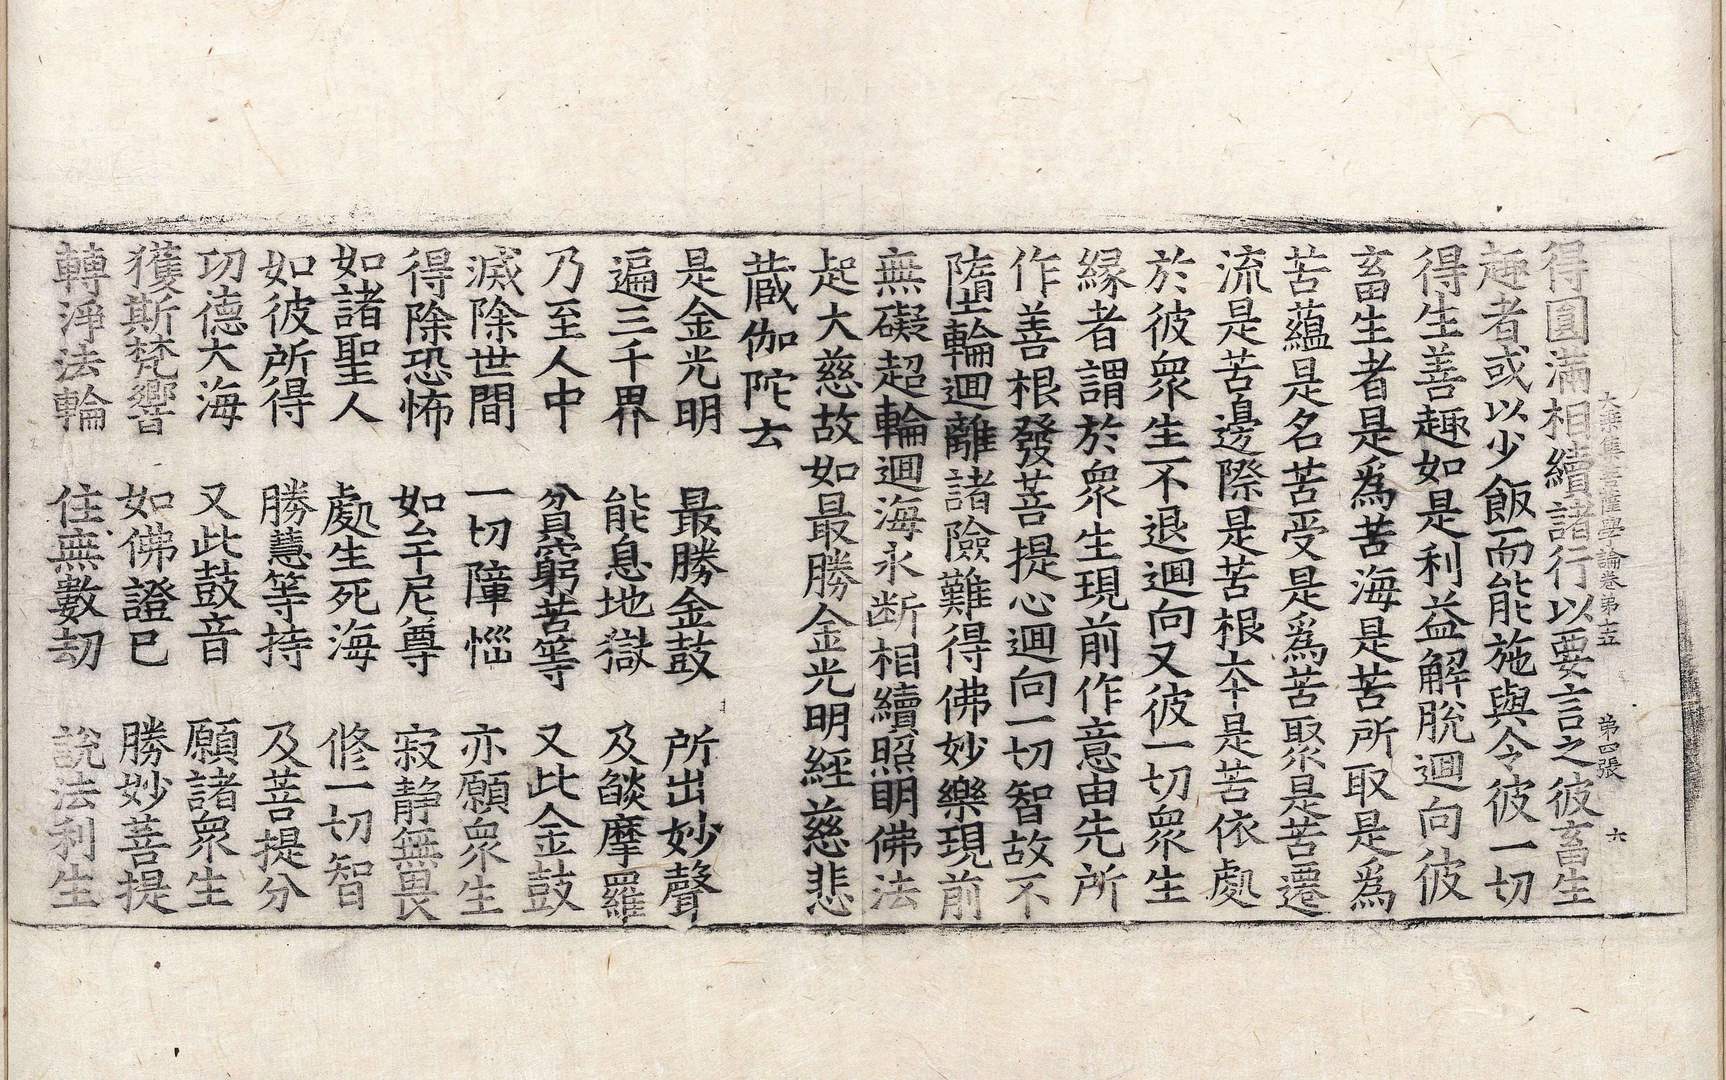 大乘集菩薩學論卷第十五　第四張　六
得圓滿相續諸行以要言之彼畜生
趣者或以少飯而能施與令彼一切
得生善趣如是利益解脫迴向彼
畜生者是爲苦海是苦所取是爲
苦蘊是名苦受是爲苦聚是苦遷
流是苦邊際是苦根本是苦依處
於彼衆生不退迴向又彼一切衆生
緣者謂於衆生現前作意由先所
作善根發菩提心迴向一切智故不
墮輪迴離諸險難得佛妙樂現前
無礙超輪迴海永断相續照明佛法
起大慈故如最勝金光明經慈悲
蔵伽陀云
是金光明　最勝金鼓　所出妙聲
遍三千界　能息地獄　及餤摩羅
乃至人中　貧窮苦等　又此金鼓
滅除世間　一切障惱　亦願衆生
得除恐怖　如牟尼尊　寂靜無畏
如諸聖人　處生死海　修一切智
如彼所得　勝慧等持　及菩提分
功德大海　又此鼓音　願諸衆生
獲斯梵響　如佛證已　勝妙菩提
轉淨法輪　住無數劫　說法利生